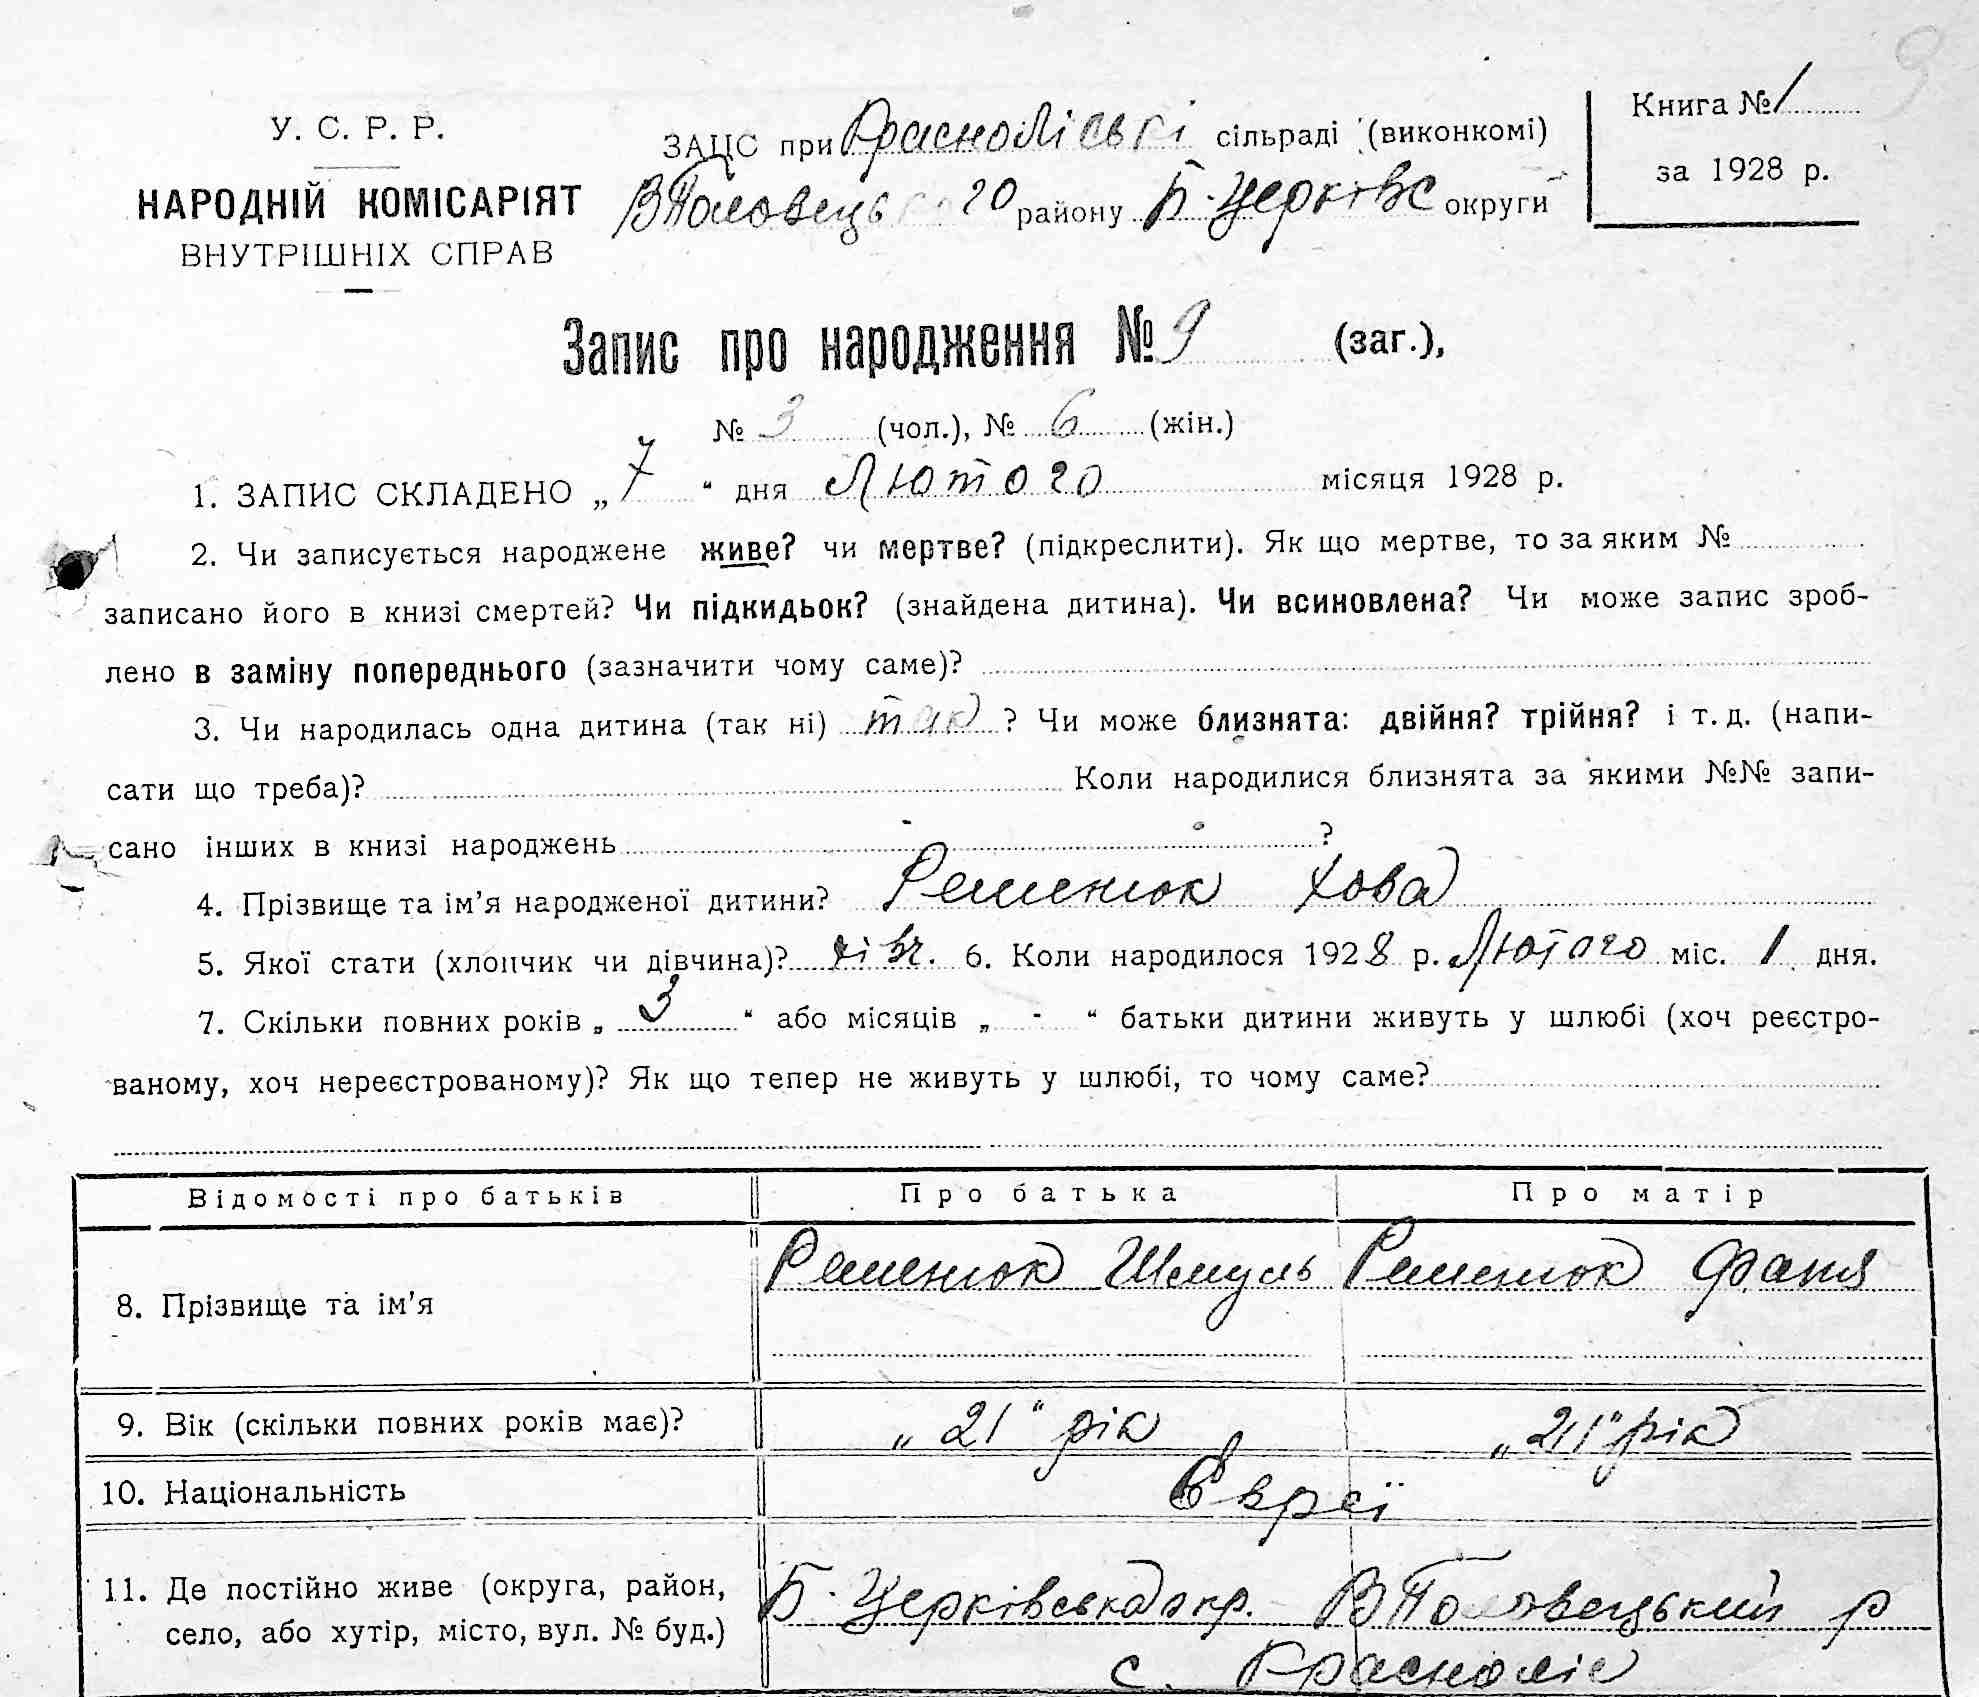 9
У. С. Р. Р.
НАРОДНІЙ КОМІСАРІЯТ
ВНУТРІШНІХ СПРАВ
ЗАЦС при Красноліські сільраді (виконкомі)
ВПоловецького району Б. Церківс округи
Книга № 1
за 1928 р.
Запис про народження № 9 (заг.),
№ 3 (чол.), № 6 (жін.)
1. ЗАПИС СКЛАДЕНО „ 7 “ дня Лютого місяця 1928 р.
2. Чи записується народжене живе? чи мертве? (підкреслити). Як що мертве, то за яким №
записано його в книзі смертей? Чи підкидьок? (знайдена дитина). Чи всиновлена? Чи може запис зроб-
лено в заміну попереднього (зазначити чому саме)?
3. Чи народилась одна дитина (так ні) так ? Чи може близнята: двійня? трійня? і т. д. (напи-
сати що треба)? Коли народилися близнята за якими №№ запи-
сано інших в книзі народжень ?
4. Прізвище та ім'я народженої дитини? Ременюк Хова
5. Якої стати (хлопчик чи дівчина)? дівч. 6. Коли народилося 1928 р. Лютого міс. 1 дня.
7. Скільки повних років „ 3 “ або місяців „ - “ батьки дитини живуть у шлюбі (хоч реєстро-
ваному, хоч нереєстрованому)? Як що тепер не живуть у шлюбі, то чому саме?
Відомості про батьків Про батька Про матір
8. Прізвище та ім'я Ременюк Шмуль Ременюк Фаня
9. Вік (скільки повних років має)? „ 21 “ рік „ 21 “ рік
10. Національність Євреї
11. Де постійно живе (округа, район, Б. Церківська окр. ВПоловецький р
село, або хутір, місто, вул. № буд.) с. Красноліс